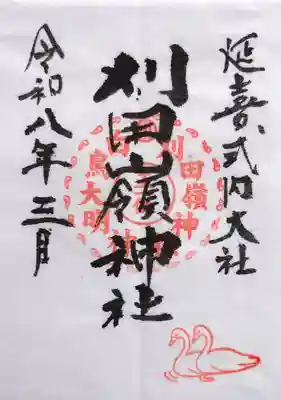 延喜式内大社
刈田嶺神社
令和八年三月
刈田嶺神社
白鳥大明神